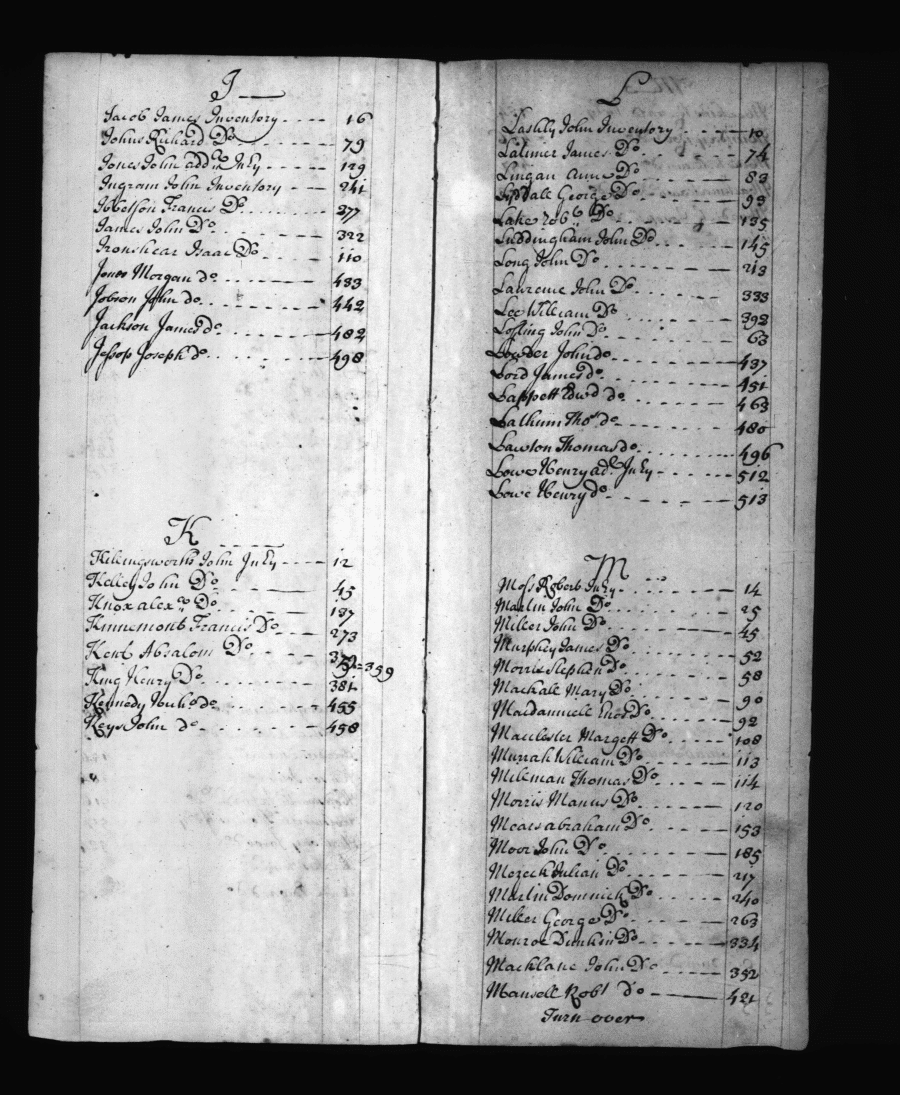 J
Jacob James Inventory 16
Johns Richard Do 79
Jones John addl Inty 129
Ingram John Inventory 241
Ibbetson Francis Do 277
James John Do 322
Ironshear Isaac Do 110
Jones Morgan do 433
Jobson John do 442
Jackson James do 482
Jessop Joseph do 498
K
Killingsworth John Inty 12
Kelley John Do 45
Knox alexr Do 187
Kinnemont Francis Do 273
Kent Absalom Do 359
King Henry Do 381
Kennedy do 455
Keys John do 458
L
Lashly John Inventory 10
Latimer James Do 74
Lingan Anne Do 83
George Do 93
Lake Robt Do 135
Luddingham John Do 145
Long John Do 213
Lawrence John Do 333
Lee William Do 392
Lofling John Do 63
Lowder John do 437
Lord James do 451
Lappett Edwd do 463
Lathum Thos do 480
Lawton Thomas do 496
Lowe Henry ad. Inty 512
Lowe Henry do 513
M
Moss Robert Inty 14
Martin John Do 25
Miller John Do 45
Murphey James Do 52
Morris Stephen Do 58
Mackale Mary Do 90
Do 92
Macclester Margett Do 108
Murrah William Do 113
Mileman Thomas Do 114
Morris Manus Do 120
Mears abraham Do 153
Moor John Do 185
Mezeck Julian Do 217
Martin Domnick Do 240
Miller George Do 263
Monroe Dunkin Do 334
Macklane John Do 352
Mansell Robt do 421
Turn over